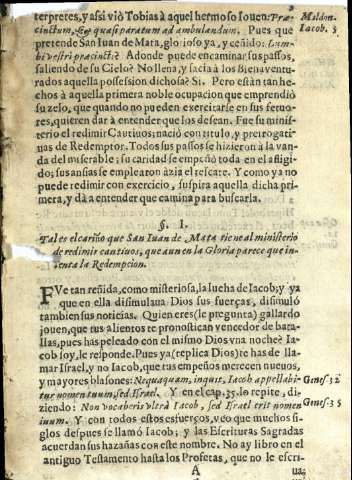 terpretes, y assi viò Tobias à aquel hermoso Iouen: Præ-
cinctum, & quasi paratum ad ambulandum. Pues que
pretende San Iuan de Mata, glorioso ya, y ceñido: Lum-
bi vestri præcincti? Adonde puede encaminar sus passos,
saliendo de su Cielo? No llena, y sacia à los Bienauentu-
rados aquella possession dichosa? Si. Pero están tan he-
chos à aquella primera noble ocupacion que emprendió
su zelo, que quando no pueden exercitarse en sus feruo-
res, quieren dár à entender que los desean. Fue su minis-
terio el redimir Cautiuos; nació con titulo, y prerrogatiuas
de Redemptor. Todos sus passos se hizieron à la van-
da del miserable; su caridad se empeñó toda en el afligi-
do; sus ansias se emplearon àzia el rescate. Y como ya no
puede redimir con exercicio, suspira aquella dicha prima-
era, y dà a entender que camina para buscarla.
Maldon.
Iacob. 5
§. I.
Tal es el cariño que San Iuan de Mata tiene al ministerio
de redimir cautiuos, que aun en la Gloria parece que in-
tenta la Redempcion.
FVe tan reñida, como misteriosa, la lucha de Iacob; y ya
que en ella disimulaua Dios sus fuerças, disimuló
tambien sus noticias. Quien eres (le pregunta) gallardo
jouen, que tus alientos te pronostican vencedor de bata-
llas, pues has peleado con el mismo Dios vna noche? Ia-
cob soy, le responde. Pues ya (replica Dios) te has de lla-
mar Israel, y no Iacob, que tus empeños merecen nueuos,
y mayores blasones: Nequaquam, inquit, Iacob appellabi-
tur nomen tuum, sed Israel. Y en el cap. 35. lo repite, di-
ziendo: Non vocaberis vltrà Iacob, sed Israel erit nomen
tuum. Y con todos estos esfuerços, veo que muchos si-
glos despues se llamó Iacob; y las Escrituras Sagradas
acuerdan sus hazañas con este nombre. No ay libro en el
antiguo Testamento hasta los Profetas, que no le escri-
Genes. 32
Genes. 35
A
ua;